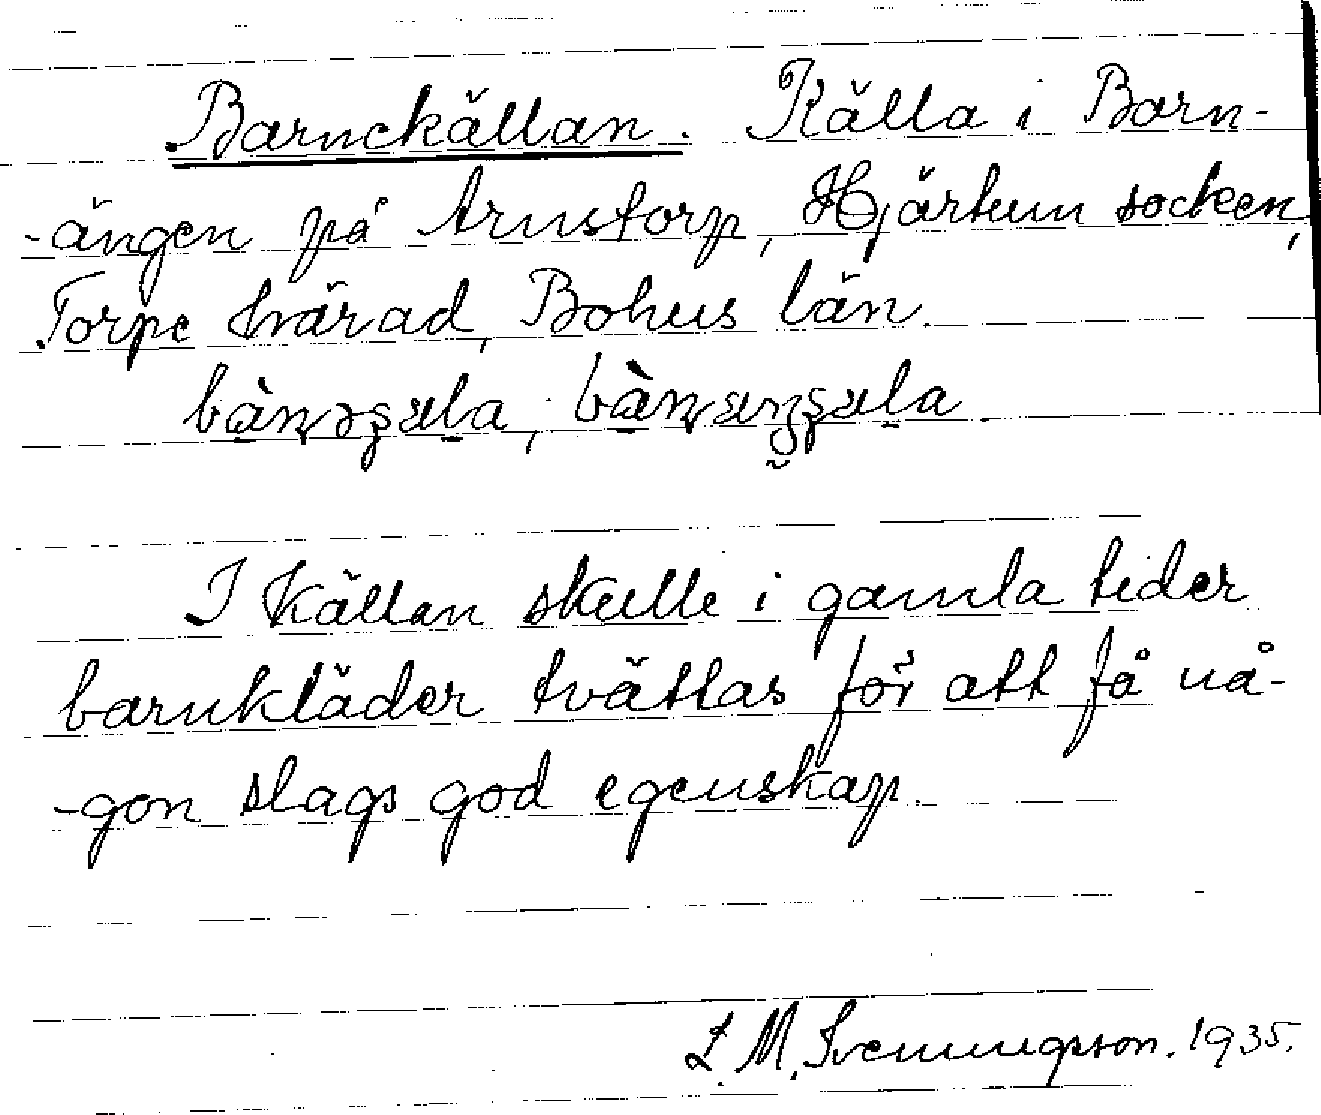 Barnekällan. Källa i Barn-
-ängen på Arnstorp, Hjärtum socken,
Torpe härad, Bohus län.
I Källan skulle i gamla tider
barnkläder tvättas för att få nå-
-gon slags god egenskap.
L. M. Svenungsson. 1935.